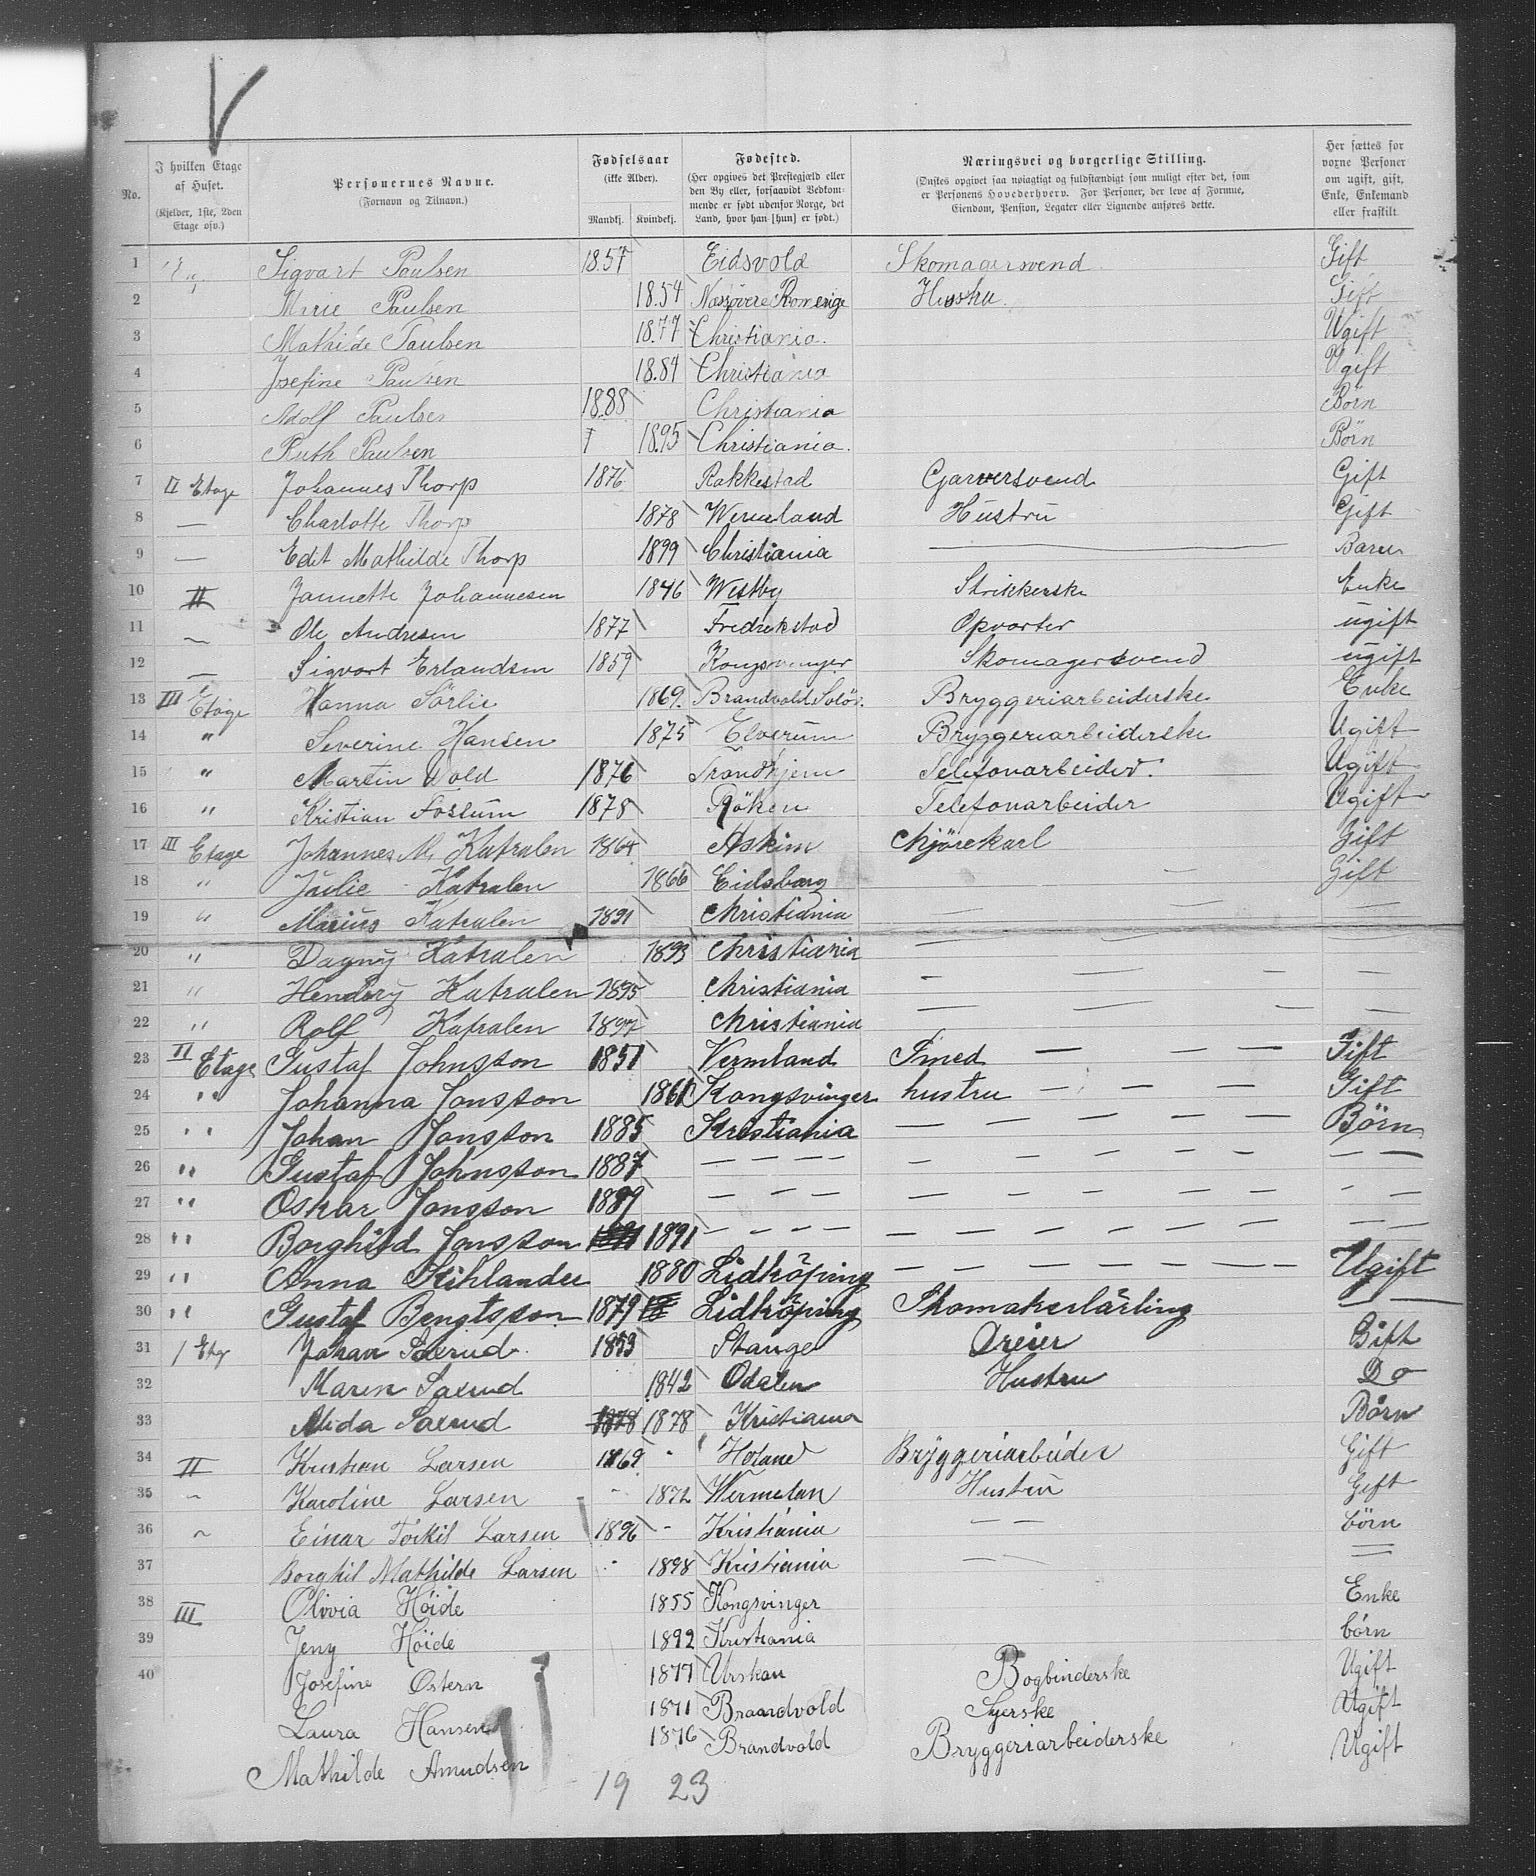 V
No. I hvilken Etage af Huset. (Kjelder, 1ste, 2den Etage osv.) Personernes Navne. (Fornavn og Tilnavn.) Fødselsaar (ikke Alder). Mandkj. Kvindekj. Fødested. (Her opgives det Prestegjæld eller den By eller, forsaavidt Vedkommende er født udenfor Norge, det Land, hvor han [hun] er født.) Næringsvei og borgerlige Stilling. (Ønskes opgivet saa nøiagtigt og fuldstændigt som muligt efter det, som er Personens Hovederhverv. For Personer, der leve af Formue, Eiendom, Pension, Legater eller Lignende anføres dette. Her sættes for voxne Personer om ugift, gift, Enke, Enkemand eller fraskilt.
1 Sigvart Paulsen 1857 Eidsvold Skomagersvend Gift
2 Marie Paulsen 1854 Romerige Hustru Gift
3 Mathilde Paulsen 1877 Christiania. Ugift
4 Josefine Paulsen 1884 Christiania Ugift
5 Adolf Paulsen 1888 Christiania Børn
6 Ruth Paulsen 1895 Christiania. Børn
7 II Etage Johannes Thorp 1876 Rakkestad Garversvend Gift
8 — Charlotte Thorp 1878 Wermland Hustru Gift
9 — Edit Mathilde Thorp 1899 Christiania — Baren
10 II Jannette Johannesen 1846 Westby Strikkerske Enke
11 — Ole Andresen 1877 Fredrekstad Opvarter ugift
12 — Sigvort Erlandsen 1859 Kongsvinger Skomagersvend ugift
13 III Etage Hanna Sørlie 1869. Brandvold Solør. Bryggeriarbeiderske Enke
14 " Severine Hansen 1875 Elverum Bryggeriarbeiderske Ugift
15 " Martin Wold 1876 Trondhjem Telefonarbeider. Ugift
16 " Kristian Fossum 1878 Röken Telefonarbeider Ugift
17 III Etage Johannes M. Katralen 1864 Askim Kjørekarl Gift
18 " Julie Katralen 1866 Eidsberg — Gift
19 " Marius Katralen 1891 Christiania — — —
20 " Dagny Katralen 1893 Christiania — — —
21 " Hendry Katralen 1895 Christiania - — — —
22 " Rolf Katralen 1897 Christiania — — — —
23 II Etage Gustaf Johnsson 1851 Vermland Smed — — — Gift
24 " Johanna Jonsson 1860 Kongsvinger hustru — — — — Gift
25 " Johan Jonsson 1885 Kristiania — — — — — — Børn
26 " Gustaf Johnsson 1887 — — — — — — — — — — — —
27 " Oskar Jonsson 1889 — — — — — — — — — — - -
28 " Borghild Jonsson 1891 1891 — — — — — — — — — — — —
29 " Anna Kihlander 1880 Lidköping — — — — — — — Ugift
30 " Gustaf Bengtsson 1879 Lidköping Skomakerlärling —
31 1 Etg Johan Saxrud. 1853 Stange Dreier Gift
32 Maren Saxrud 1842 Odalen Hustru Do
33 Alida Saxrud 1878 1878 Kristiania Børn
34 II Kristian Larsen 1869 - Høland Bryggeriarbeider Gift
35 ~ Karoline Larsen - 1872 Wermelan Hustru Gift
36 ~ Einar Torkil Larsen 1896 - Kristiania — — börn
37 Borghil Mathilde Larsen - 1898 Kristiania — — =
38 III Olivia Höide 1855 Kongsvinger Enke
39 Jeny Höide 1892 Kristiania børn
40 Josefine Østern 1877 Urskau Bogbinderske Ugift
Laura Hansen 1871 Braandvold Syerske Ugift
Mathilde Amudsen 1876 Brandvold Bryggeriarbeiderske Ugift
19 23